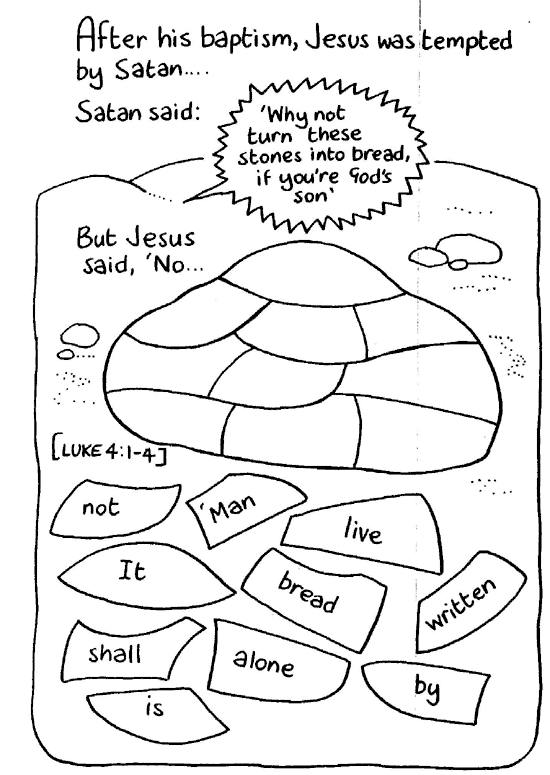 After his baptism, Jesus was tempted
by Satan....
Satan said:
'Why not
turn these
stones into bread,
if you're God's
son'
But Jesus
said, 'No...
[LUKE 4:1-4]
not
'Man
live
It
bread
written
shall
alone
by
is